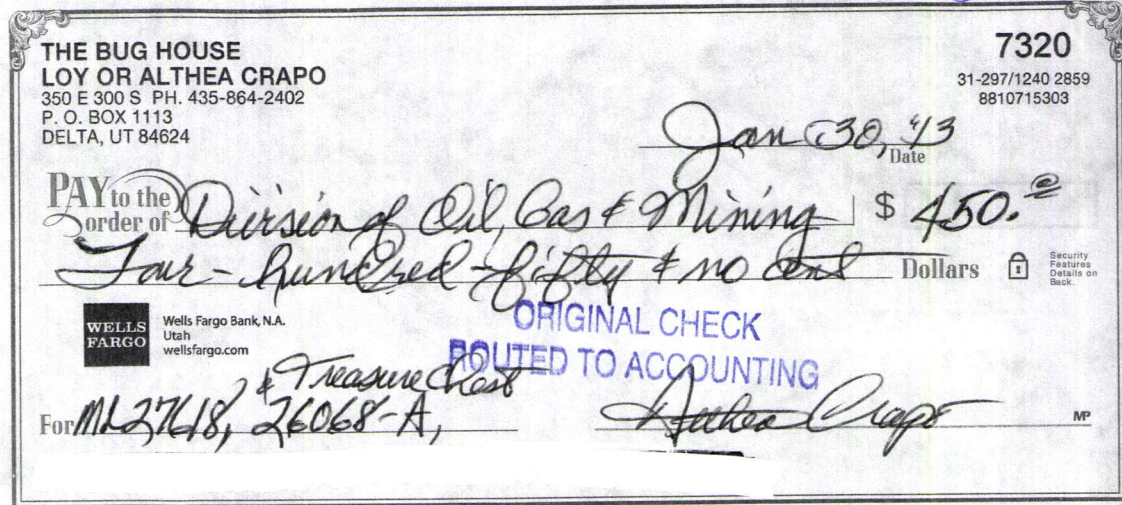 THE BUG HOUSE
LOY OR ALTHEA CRAPO
350 E 300 S PH. 435-864-2402
P. O. BOX 1113
DELTA, UT 84624
7320
31-297/1240 2859
8810715303
Jan 30, '13
Date
PAY to the order of Division of Oil, Gas & Mining $ 450.
Four - hundred - fifty & no cent Dollars
Security Features Details on Back.
WELLS FARGO
Wells Fargo Bank, N.A.
Utah
wellsfargo.com
ORIGINAL CHECK
ROUTED TO ACCOUNTING
& Treasure Chest
For ML27618, 26068-A,
Althea Crapo
MP